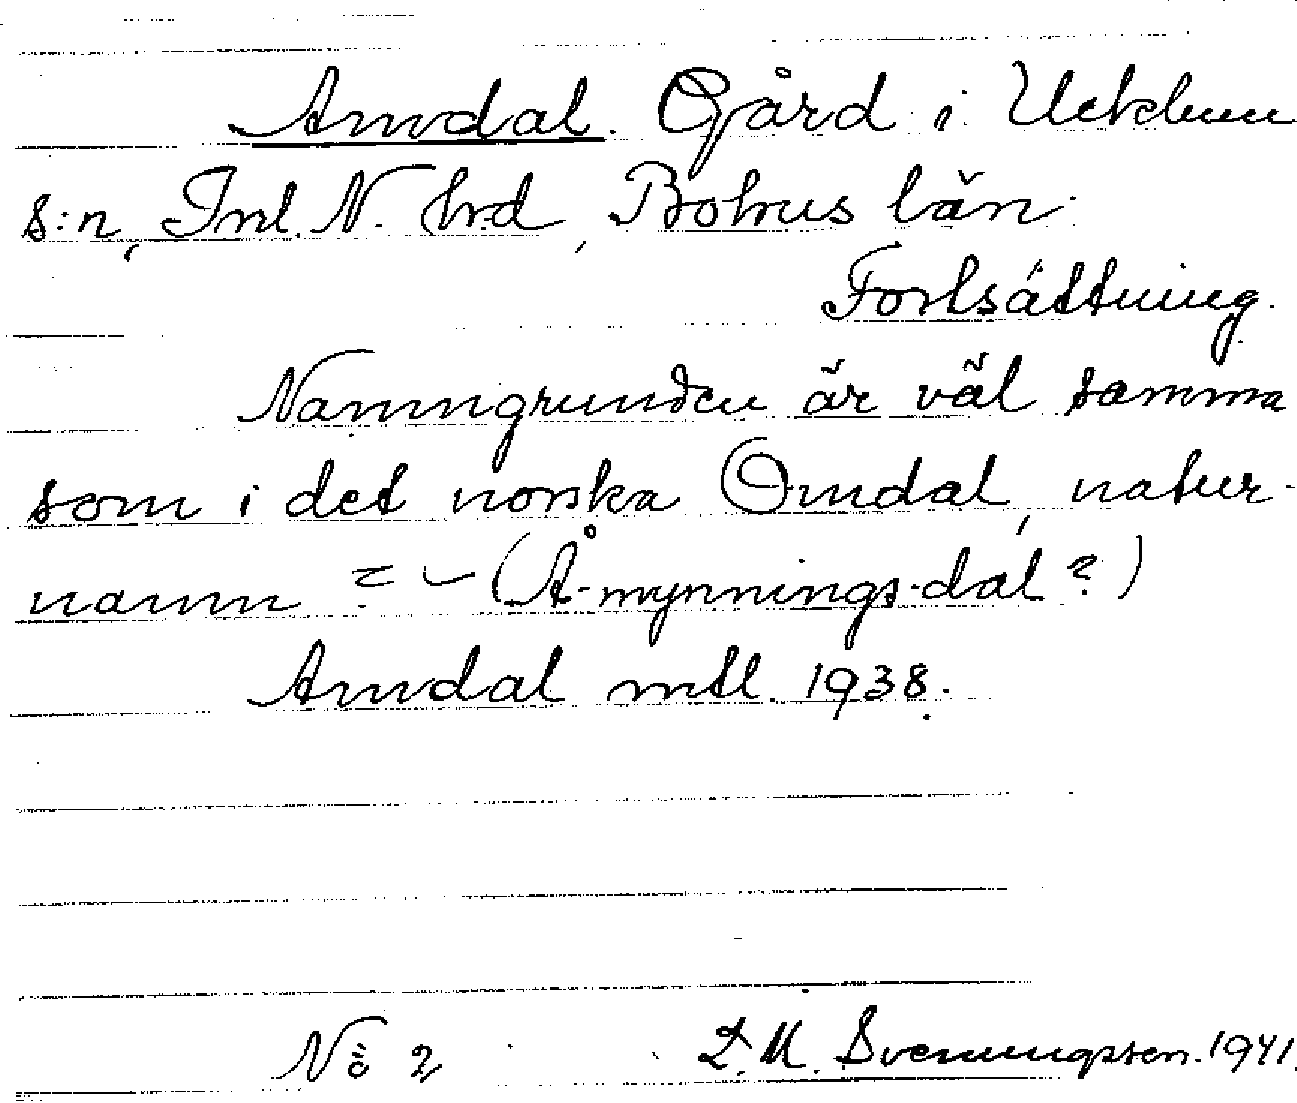 Amdal. Gård i Ucklum
s:n, Inl. N. hrd, Bohus län.
Fortsättning.
Namngrunden är väl samma
som i det norska Omdal, natur-
namn = ~ (Å-mynnings-dal?)
Amdal mtl. 1938.
No 2 D. M. Svenungsson. 1941.